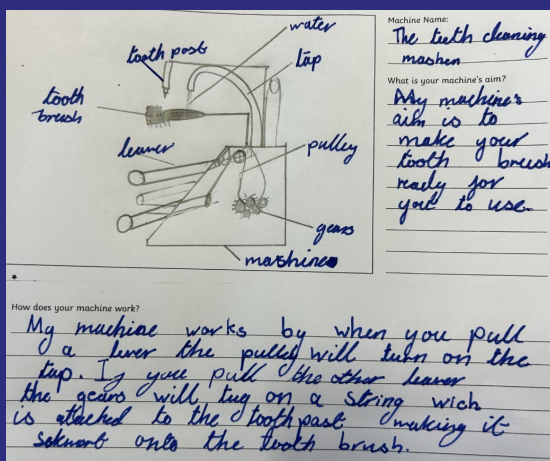 water
tooth past
tap
tooth
brush
leaver
pulley
gears
mashine
Machine Name:
The teeth cleaning
mashen
What is your machine's aim?
My machine's
aim is to
make your
tooth brush
ready for
you to use.
How does your machine work?
My machine works by when you pull
a lever the pulley will turn on the
tap. If you pull the other leaver
the gears will tug on a string wich
is attached to the toothpast making it
sckwort onto the tooth brush.